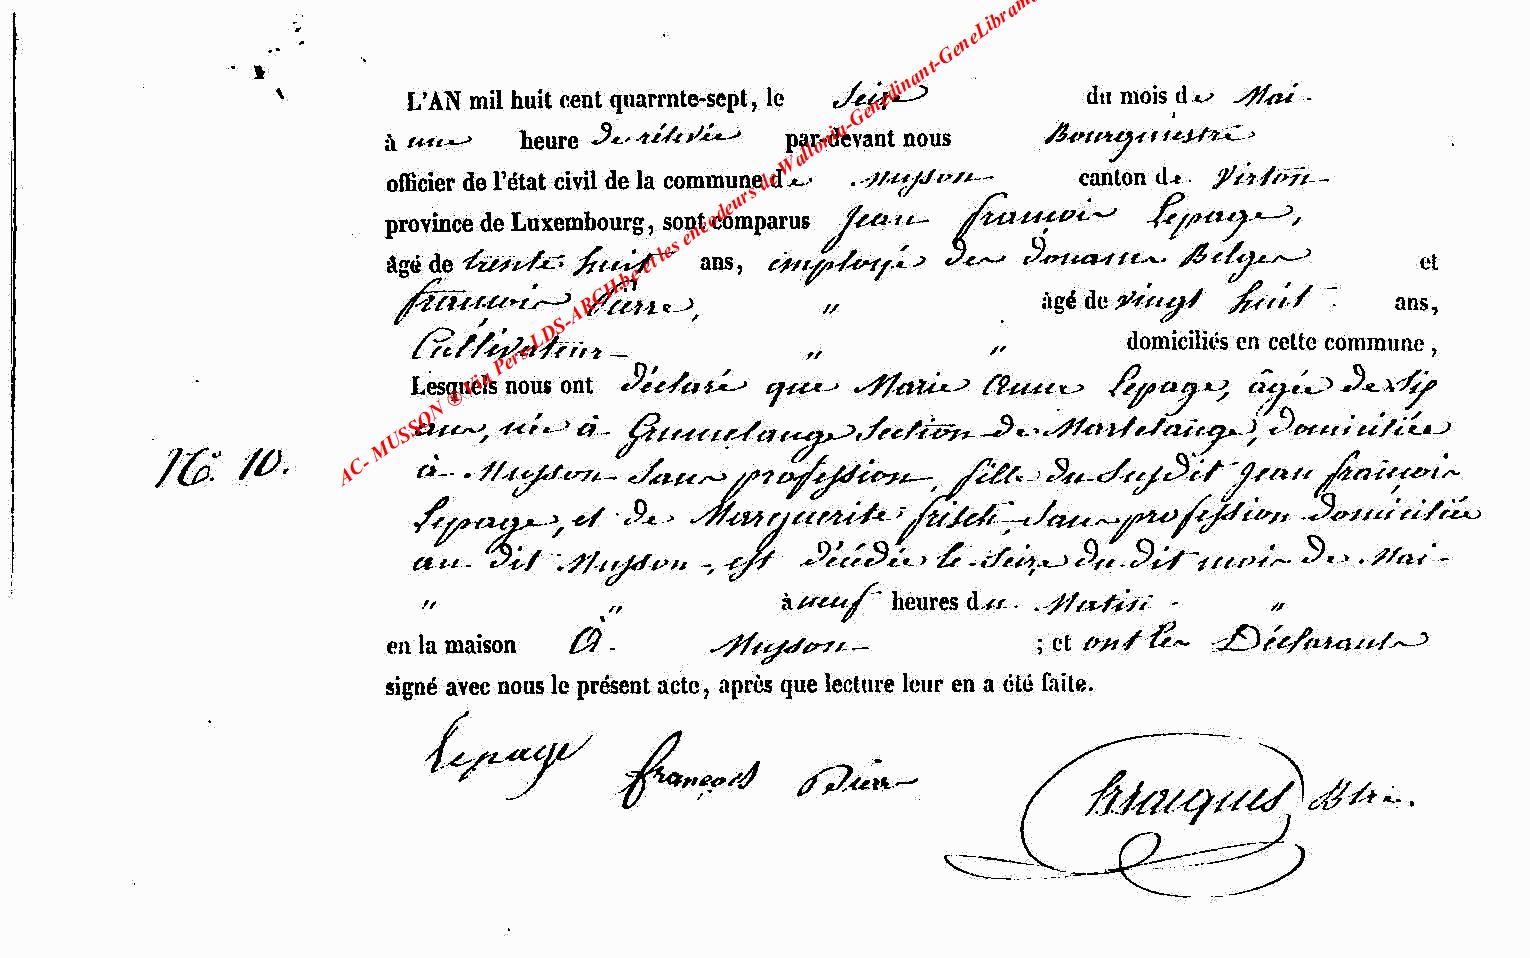 L'AN mil huit cent quarrnte-sept, le Seize du mois de Mai.
à une heure de rélevée par-devant nous Bourgmestre
officier de l'état civil de la commune de Musson canton de Virton
province de Luxembourg, sont comparus Jean françois Lepage,
âgé de trente huit ans, employé des douanes Belges et
françois Pierre, " âgé de vingt huit ans,
Cultivateur " " domiciliés en cette commune,
Lesquels nous ont déclaré que Marie Anne Lepage, âgée de Six
ans, née à Grumelange Section de Martelange, domiciliée
à Musson Sans profession, fille du Susdit Jean françois
Lepage, et de Marguerite frisch, Sans profession domiciliée
au dit Musson, est décédée le Seize du dit mois de Mai
" " à neuf heures du Matin "
en la maison à Musson ; et ont les Déclarants
signé avec nous le présent acte, après que lecture leur en a été faite.
No. 10.
Lepage françois Pierre Bltre.
AC- MUSSON ® Via Pers-LDS-ARCH.be et les encodeurs de Wallonia-Genedinant-GeneLibramo